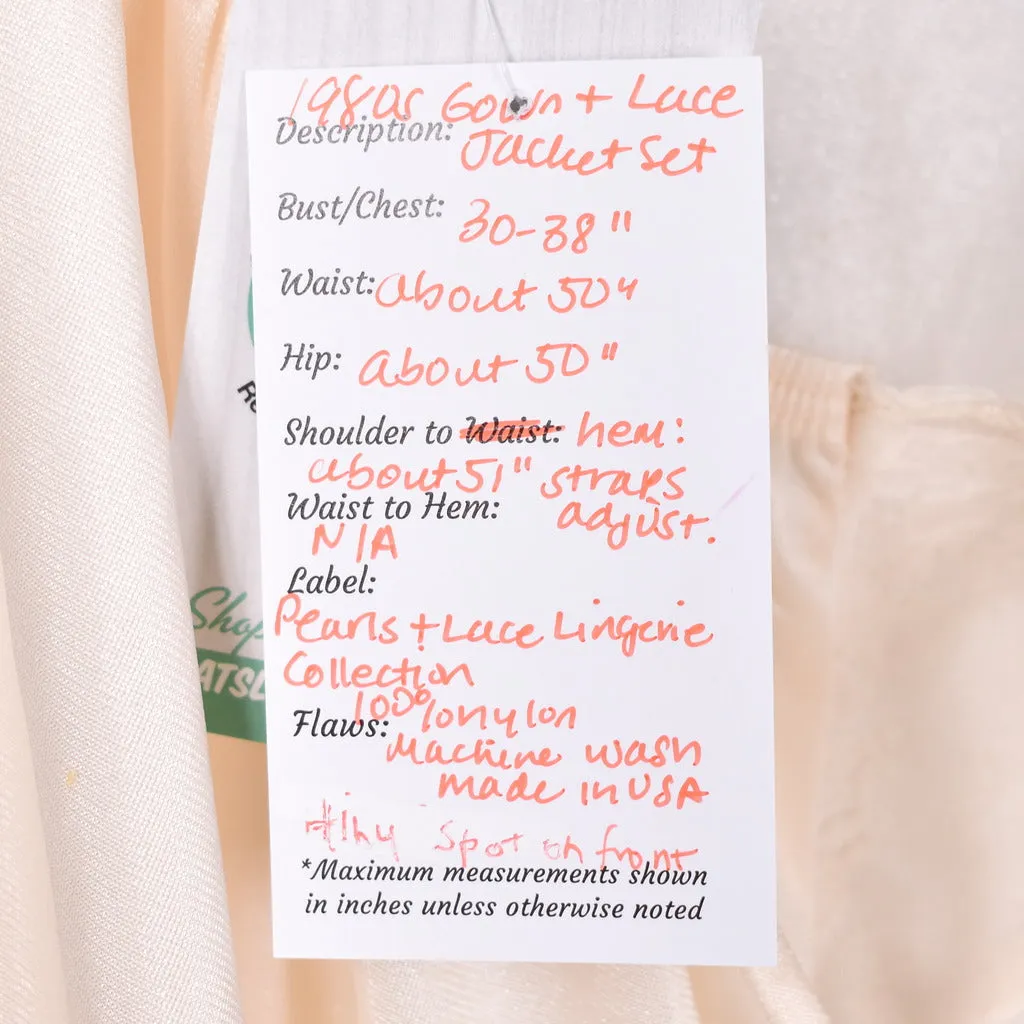 1980s Gown + Lace
Description: Jacket Set
Bust/Chest: 30-38"
Waist: About 50"
Hip: About 50"
Shoulder to Waist: hem:
about 51" straps
Waist to Hem: adjust.
N/A
Label:
Pearls + Lace Lingerie
Collection
100% nylon
Flaws:
Machine wash
made in USA
tiny spot on front
*Maximum measurements shown
in inches unless otherwise noted
Shop